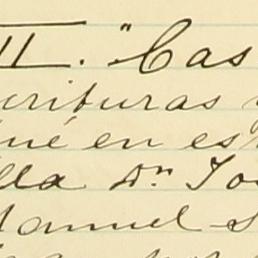 II. "Cas
crituras y
que en es
lla Dn Jos
Manuel S